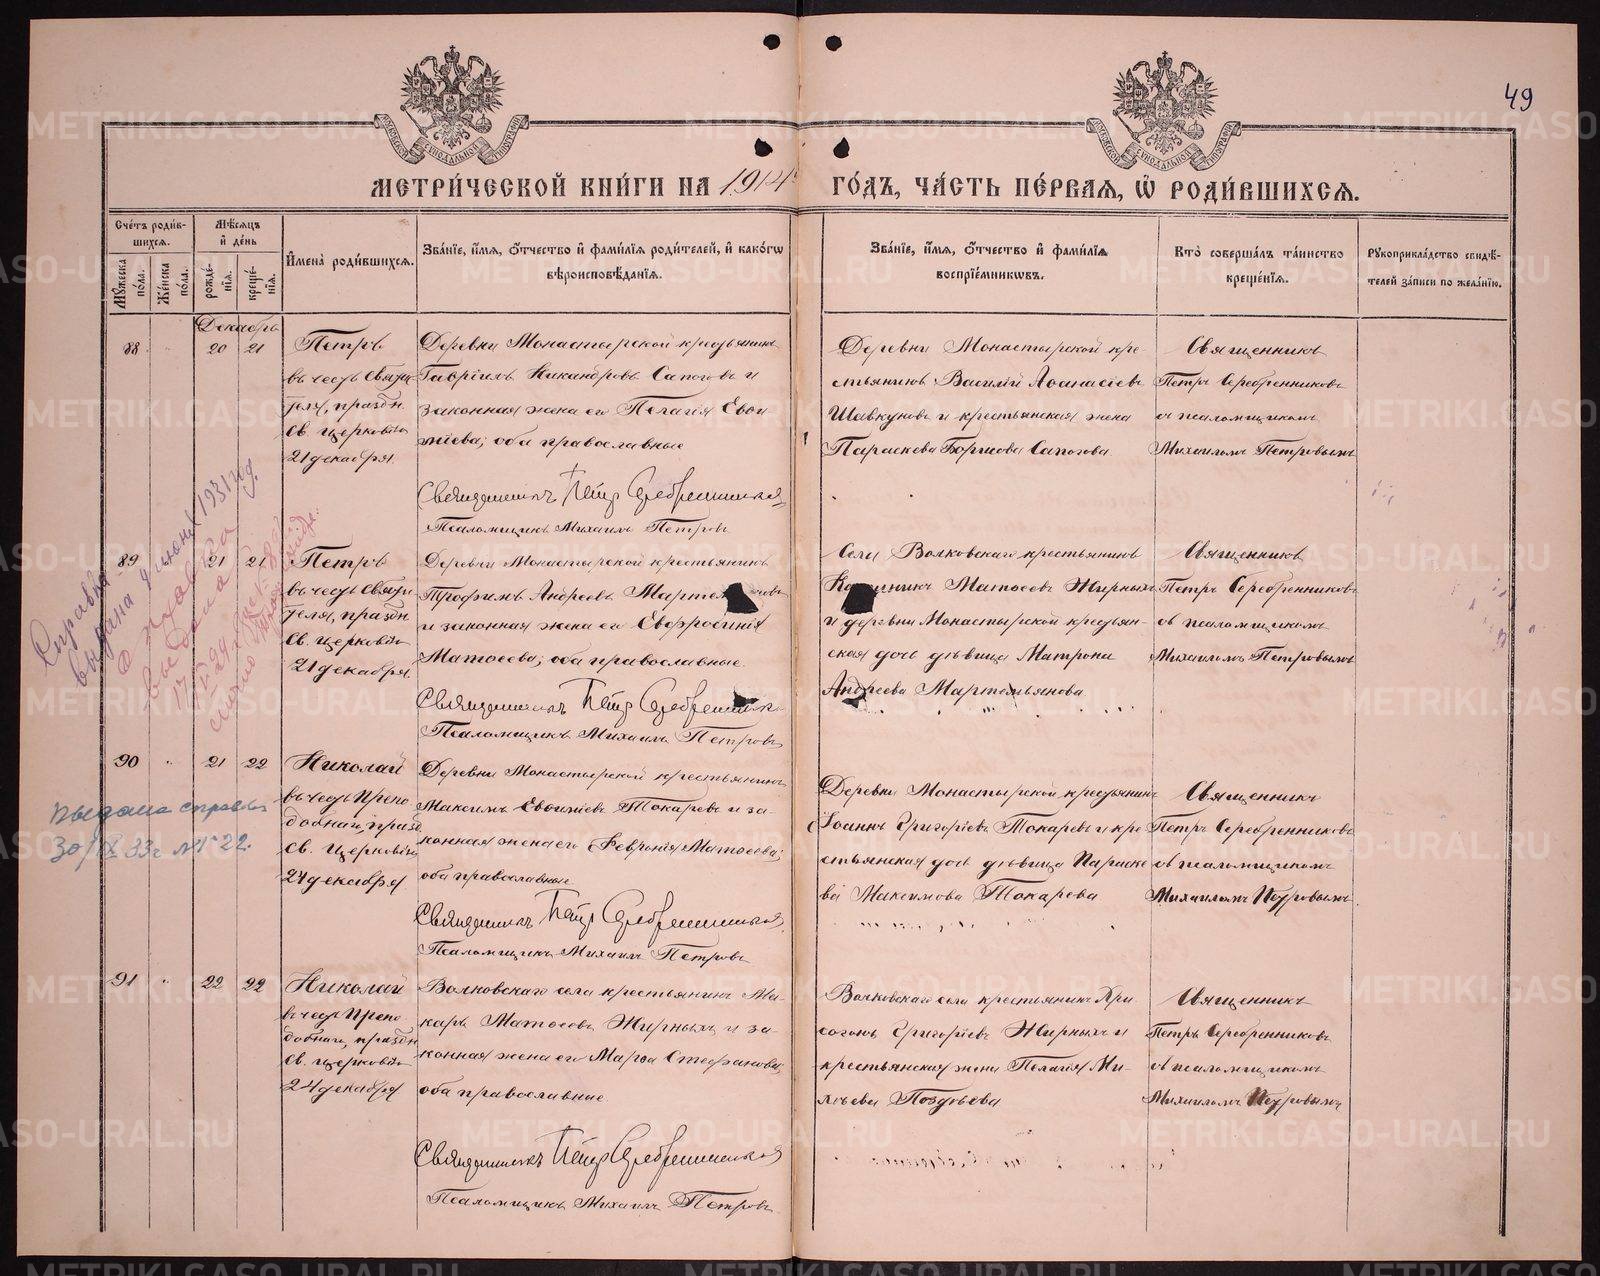 49
МЕТРИ́ЧЕСКОЙ КНИ́ГИ НА 1914 ГО́ДЪ, ЧА́СТЬ ПЕ́РВАЯ, Ѡ РОДИ́ВШИХСЯ.
Сче́тъ роди́в-
шихся.
Мꙋжеска по́ла.
Же́нска по́ла.
Мѣ́сяцъ
и҆ де́нь
рожде́нїя.
креще́нїя.
И҆мена̀ роди́вшихся.
Зва́нїе, и҆́мя, ѻ҆́тчество и҆ фами́лїя роди́телей, и҆ како́гѡ
вѣроисповѣ́данїя.
Зва́нїе, и҆́мя, ѻ҆́тчество и҆ фами́лїя
воспрїе́мникѡвъ.
Кто̀ соверша́лъ та́инство
креще́нїя.
Рꙋкоприкла́дство свидѣ́-
телей за́писи по жела́нїю.
Декабрь
88 20 21
Петръ
въ честь Святи
теля, праздн.
Св. церковію
21 декабря.
Деревни Монастырской крестьянинъ
Гавріилъ Никандровъ Сапоговъ и
законная жена его Пелагія Евѳи-
міева; оба православные
Священникъ Петр Серебренников
Псаломщикъ Михаилъ Петровъ
Деревни Монастырской кре
стьянинъ Василій Аѳанасіевъ
Шавкуновъ и крестьянская жена
Параскева Борисова Сапогова
Священникъ
Петръ Серебренниковъ
съ псаломщикомъ
Михаиломъ Петровымъ
89 21 21
Петръ
въ честь Святи
теля, праздн.
Св. церковію
21 декабря.
Деревни Монастырской крестьянинъ
Трофимъ Андреевъ
и законная жена его Евфросинія
Матѳеева; оба православные.
Священникъ Петр Серебренников
Псаломщикъ Михаилъ Петровъ
Села Волковскаго крестьянинъ
Матѳеевъ Жирныхъ
и деревни Монастырской крестьян-
ская дочь дѣвица Матрона
Андреева Мартемьянова
Священникъ
Петръ Серебренниковъ
съ псаломщикомъ
Михаиломъ Петровымъ
Справка
выдана 9 июня 1931 год.
выдана
90 21 22
Николай
въ честь Препо
добнаго, празд.
Св. церковію
24 декабря
Деревни Монастырской крестьянинъ
Максимъ Евѳиміевъ Токаревъ и за-
конная жена его Февронія Матѳеева;
оба православные
Священникъ Петр Серебренников
Псаломщикъ Михаилъ Петровъ
Деревни Монастырской крестьянинъ
Іоаннъ Григоріевъ Токаревъ и кре
стьянская дочь дѣвица Параске
ва Максимова Токарева
Священникъ
Петръ Серебренниковъ
съ псаломщикомъ
Михаиломъ Петровымъ
Выдана справка
30/IX 33 г № 122.
91 22 22
Николай
въ честь Препо
добнаго, праздн
Св. церковію
24 декабря
Волковскаго села крестьянинъ Ма-
каръ Матѳеевъ Жирныхъ и за-
конная жена его Марѳа Стефанова;
оба православные
Священникъ Петр Серебренников
Псаломщикъ Михаилъ Петровъ
Волковскаго села крестьянинъ Хри
согонъ Григоріевъ Жирныхъ и
крестьянская жена Пелагія Ми-
Поздѣева
Священникъ
Петръ Серебренниковъ
съ псаломщикомъ
Михаиломъ Петровымъ
METRIKI.GASO-URAL.RU